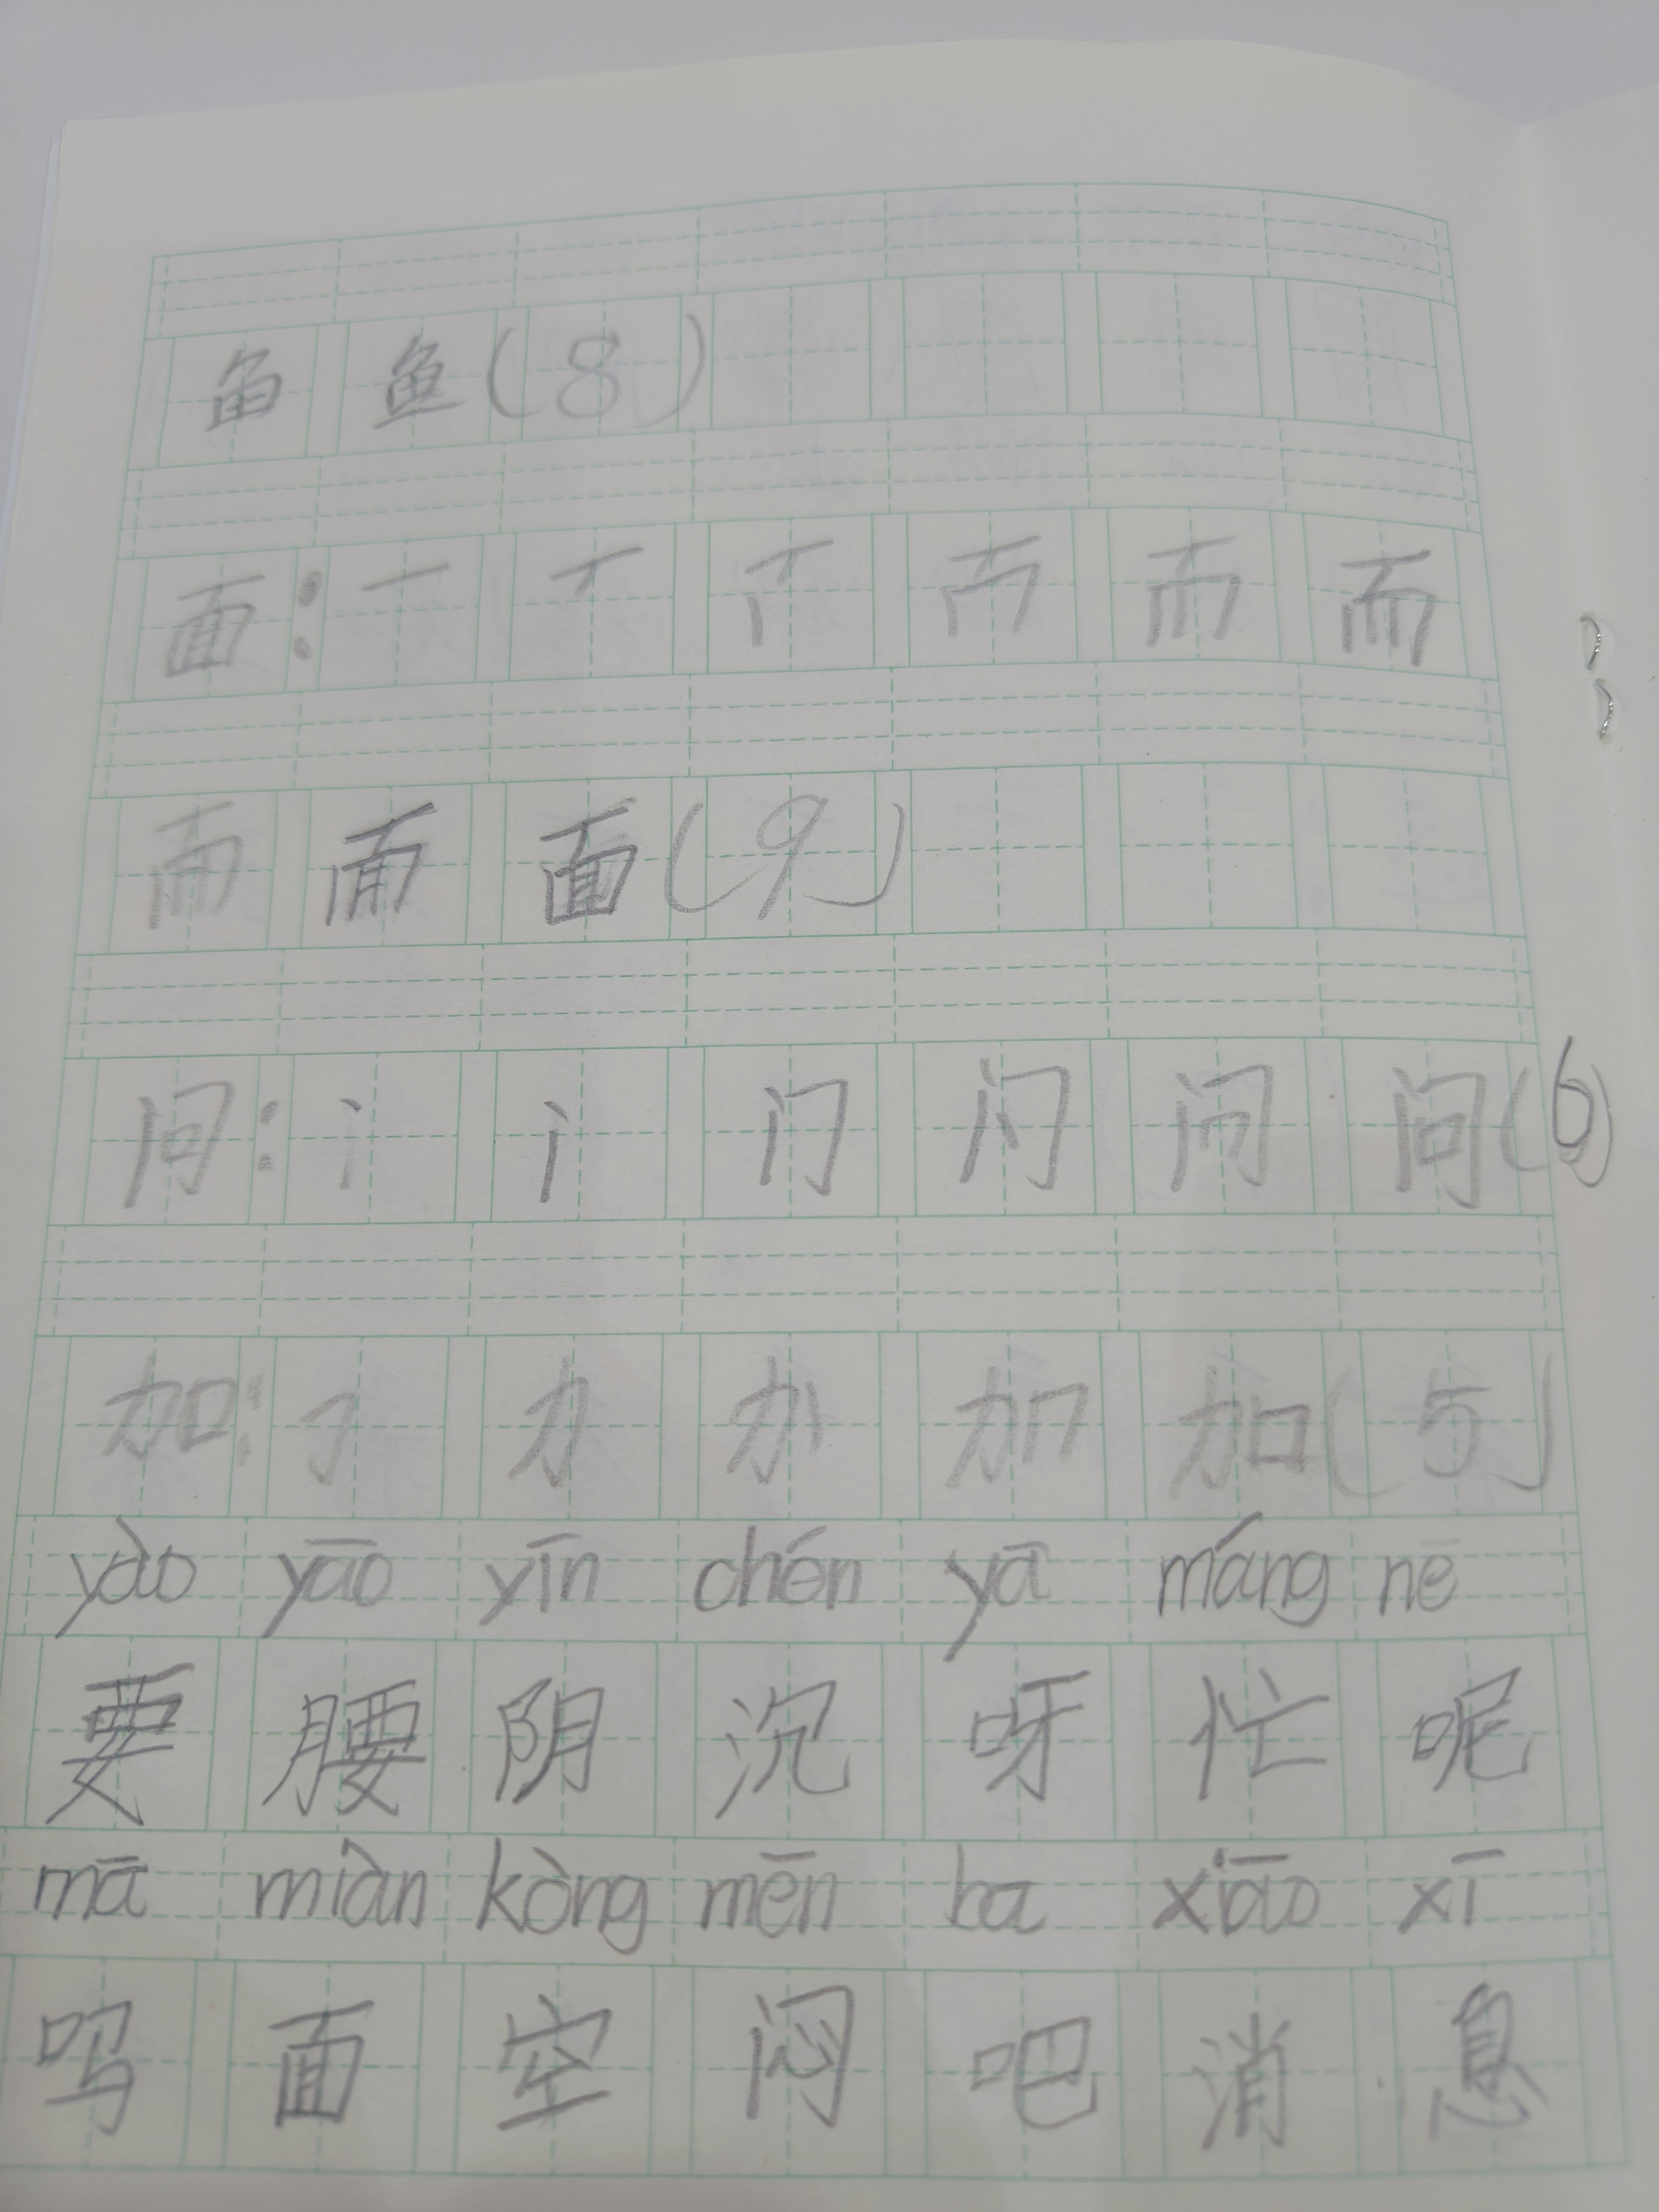 鱼 鱼(8)
面: 一 丆 而 而
而 面 面(9)
问: 丶 门 问 问(6)
加: 力 加 加(5)
yào yāo yīn chén yā máng nē
要 腰 阴 沉 呀 忙 呢
mā miàn kòng mēn ba xiāo xī
吗 面 空 闷 吧 消 息